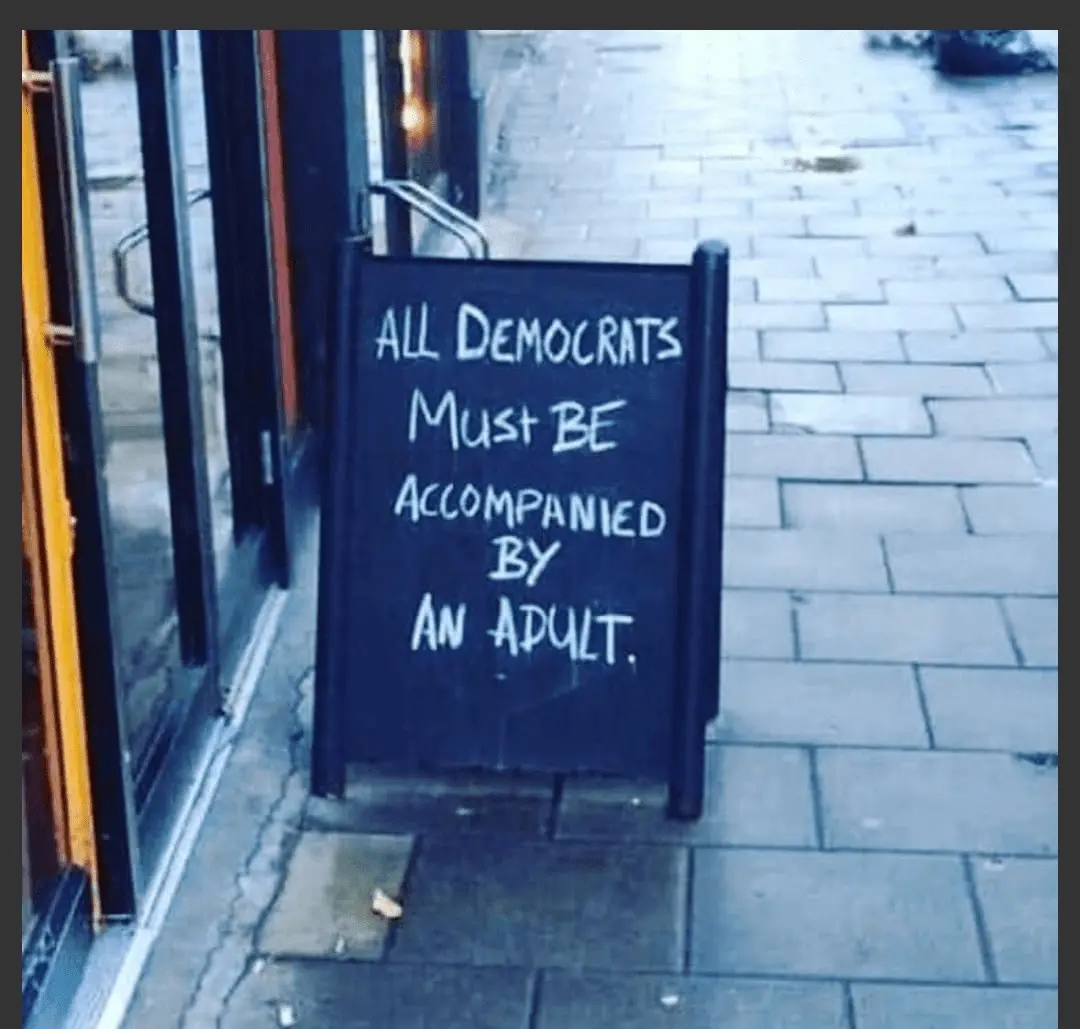 ALL DEMOCRATS
MUSt BE
ACCOMPANIED
BY
AN ADULT.